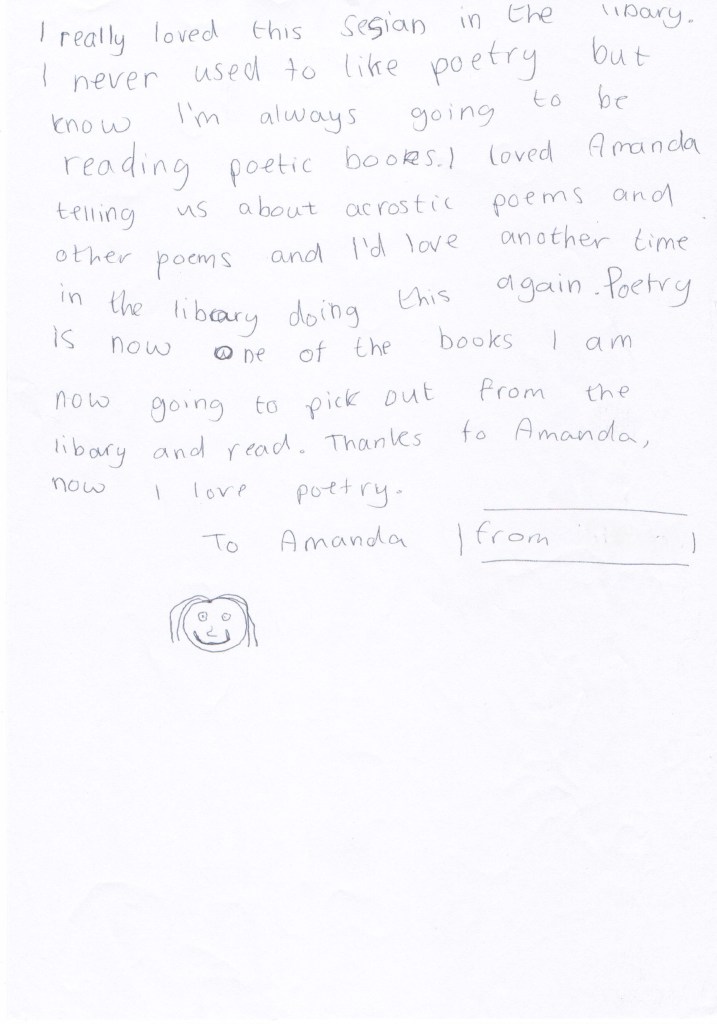 I really loved this sesian in the libary.
I never used to like poetry but
know I'm always going to be
reading poetic books. I loved Amanda
telling us about acrostic poems and
other poems and I'd love another time
in the libary doing this again. Poetry
is now one of the books I am
now going to pick out from the
libary and read. Thanks to Amanda,
now I love poetry.
To Amanda from